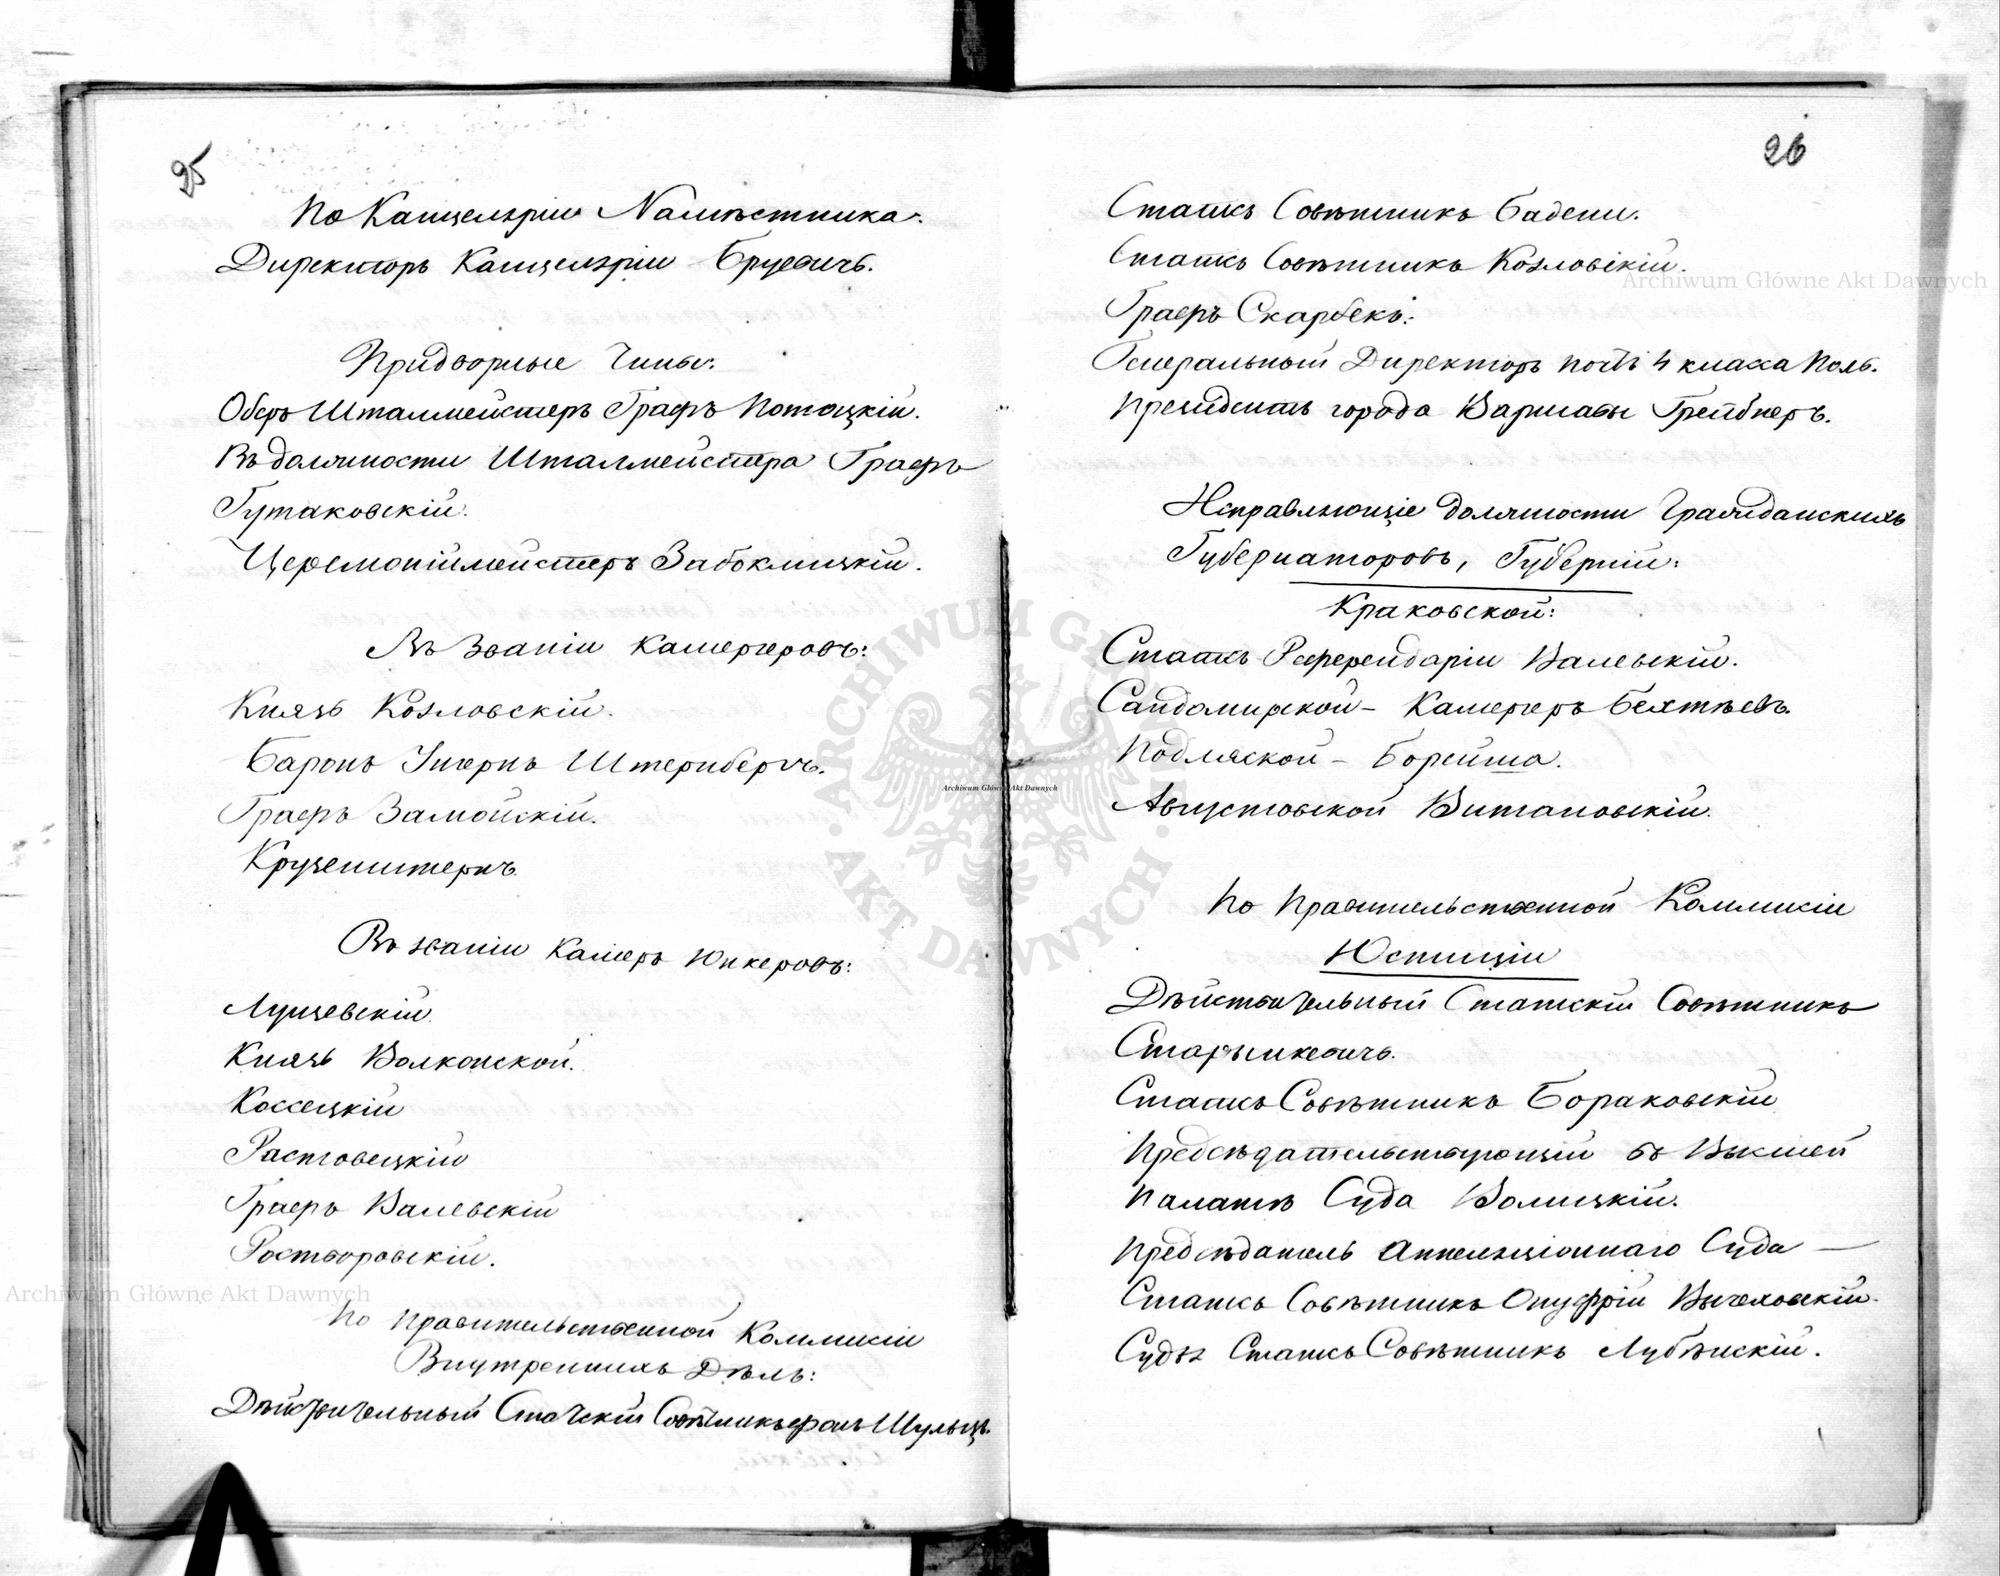 25
По Канцеляріи Намѣстника.
Директоръ Канцеляріи Бруевичъ.
Придворные Чины:
Оберъ Шталмейстеръ Графъ Потоцкій.
Въ должности Шталмейстера Графъ
Гутаковскій.
Церемоніймейстеръ Забоклицкій.
Въ Званіи Камергеровъ:
Князь Козловскій.
Баронъ Унгернъ Штернбергъ.
Графъ Замойскій.
Крузенштернъ.
Въ званіи Камеръ Юнкеровъ:
Лущевскій
Князь Волконской.
Коссецкій
Растовецкій
Графъ Валевскій
Ростворовскій.
По Правительственной Коммисіи
Внутреннихъ Дѣлъ:
Дѣйствительный Статскій Совѣтникъ фонъ Шульцъ.
26
Статсъ Совѣтникъ Бадени.
Статсъ Совѣтникъ Козловскій.
Графъ Скарбекъ:
Генеральный Директоръ почтъ 4 класса Поль.
Президентъ города Варшавы Грейбнеръ.
Исправляющіе должности Гражданскихъ
Губернаторовъ, Губерній:
Краковской:
Статсъ Референдарій Валевскій.
Сандомирской - Камергеръ Бехтѣевъ.
Подляской - Борейша.
Августовской Витановскій.
По Правительственной Коммисіи
Юстиціи
Дѣйствительный Статскій Совѣтникъ
Старынкевичъ.
Статсъ Совѣтникъ Бораковскій
Предсѣдательствующій въ Высшей
Палатѣ Суда Волицкій.
Предсѣдатель Аппеляціоннаго Суда —
Статсъ Совѣтникъ Онуфрій Вычеховскій.
Судья Статсъ Совѣтникъ Лубѣнскій.
Archiwum Główne Akt Dawnych
Archiwum Główne Akt Dawnych
Archiwum Główne Akt Dawnych